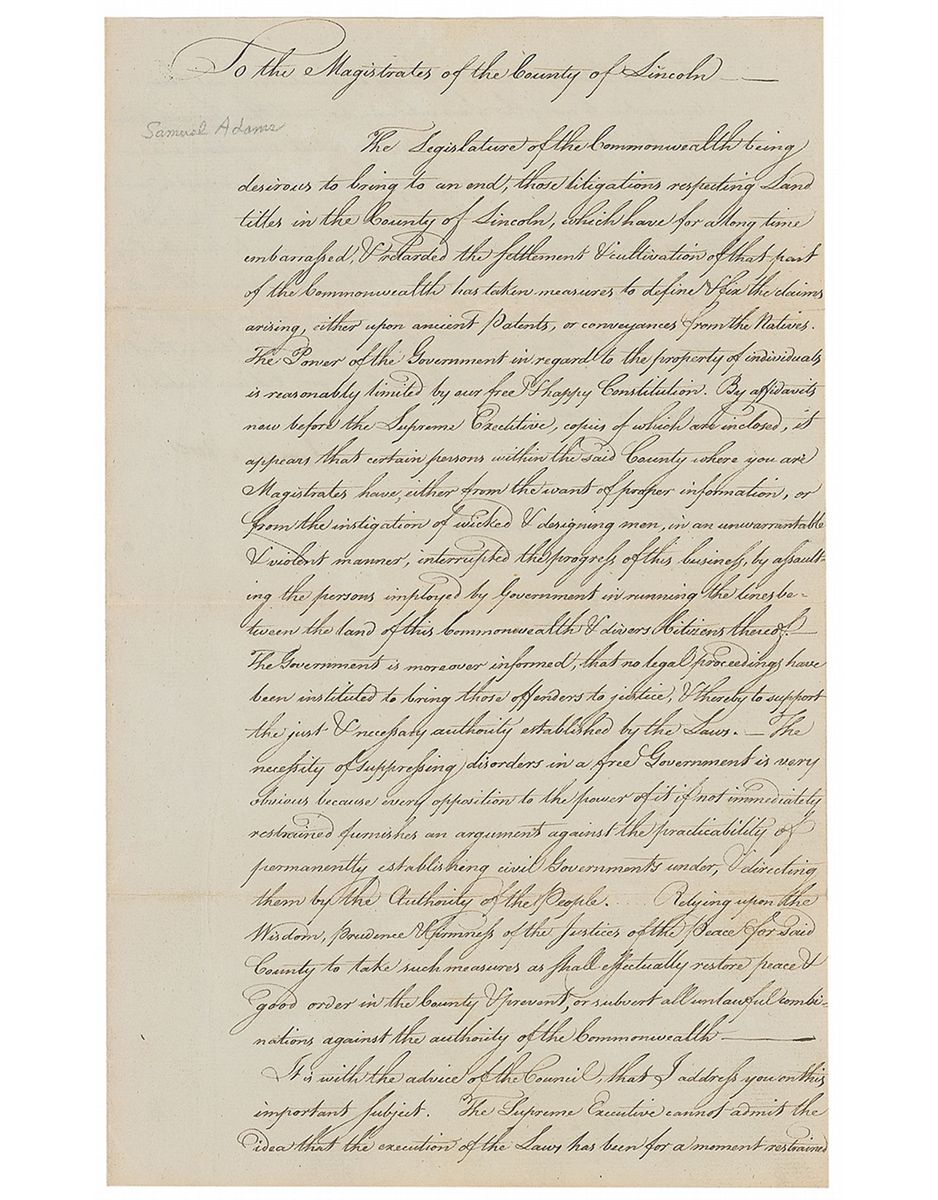 To the Magistrates of the County of Lincoln —
Samuel Adams
The Legislature of the Commonwealth being
desirous to bring to an end, those litigations respecting Land
titles in the County of Lincoln, which have for a long time
embarrassed, & retarded the settlement & cultivation of that part
of the Commonwealth has taken measures to define & fix the claims
arising, either upon ancient Patents, or conveyances from the Natives.
The Power of the Government in regard to the property of individuals,
is reasonably limited by our free & happy Constitution. By affidavits
now before the Supreme Executive, copies of which are inclosed, it
appears that certain persons within the said County where you are
Magistrates have, either from the want of proper information, or
from the instigation of wicked & designing men, in an unwarrantable
& violent manner, interrupted the progress of this business, by assault-
ing the persons imployed by Government in running the lines be-
tween the land of this Commonwealth & divers Citizens thereof. —
The Government is moreover informed, that no legal proceedings have
been instituted to bring those offenders to justice, & thereby to support
the just & necessary authority established by the Laws. — The
necessity of suppressing disorders in a free Government is very
obvious because every opposition to the power of it if not immediately
restrained furnishes an argument against the practicability of
permanently establishing civil Governments under, & directing
them by the Authority of the People. .... Relying upon the
Wisdom, prudence & firmness of the Justices of the Peace for said
County to take such measures as shall effectually restore peace &
good order in the County & prevent, or subvert all unlawful combi-
nations against the authority of the Commonwealth —
It is with the advice of the Council, that I address you on this
important subject. The Supreme Executive cannot admit the
idea that the execution of the Laws has been for a moment restrained